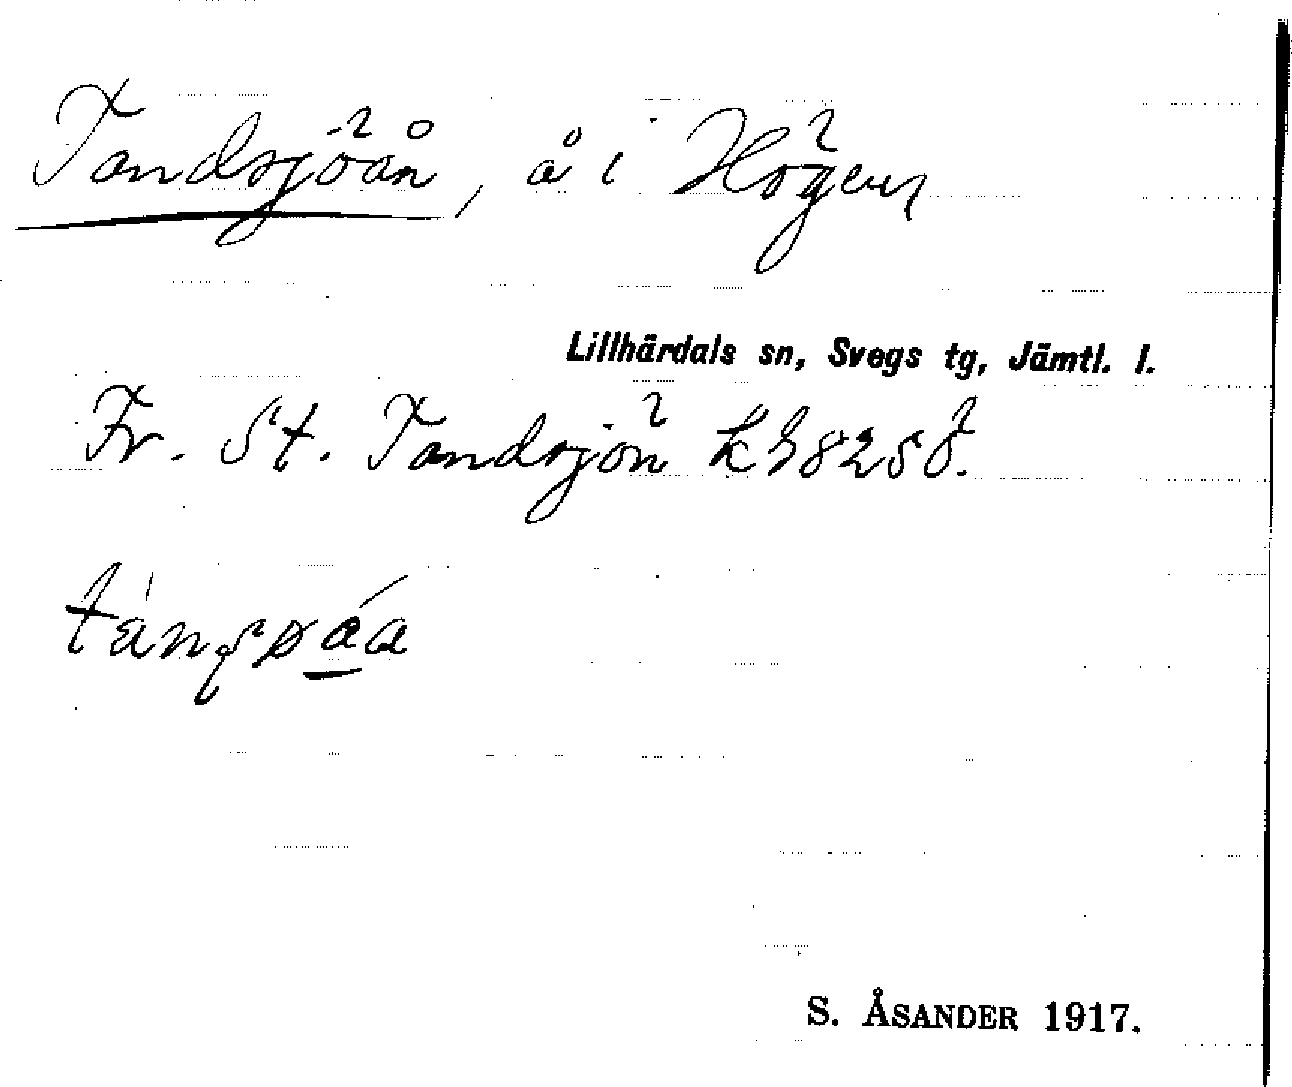 Tandsjöån, å i Högen
Lillhärdals sn, Svegs tg, Jämtl. l.
Fr. St. Tandsjön
S. ÅSANDER 1917.